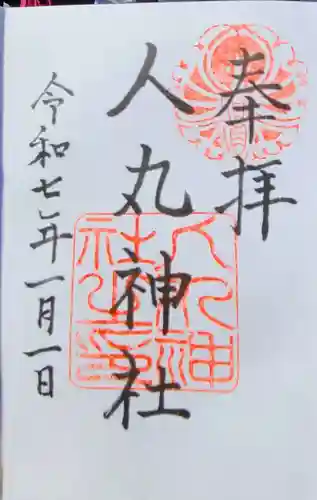 奉拝
人丸神社
令和七年一月一日
人丸神
社之印